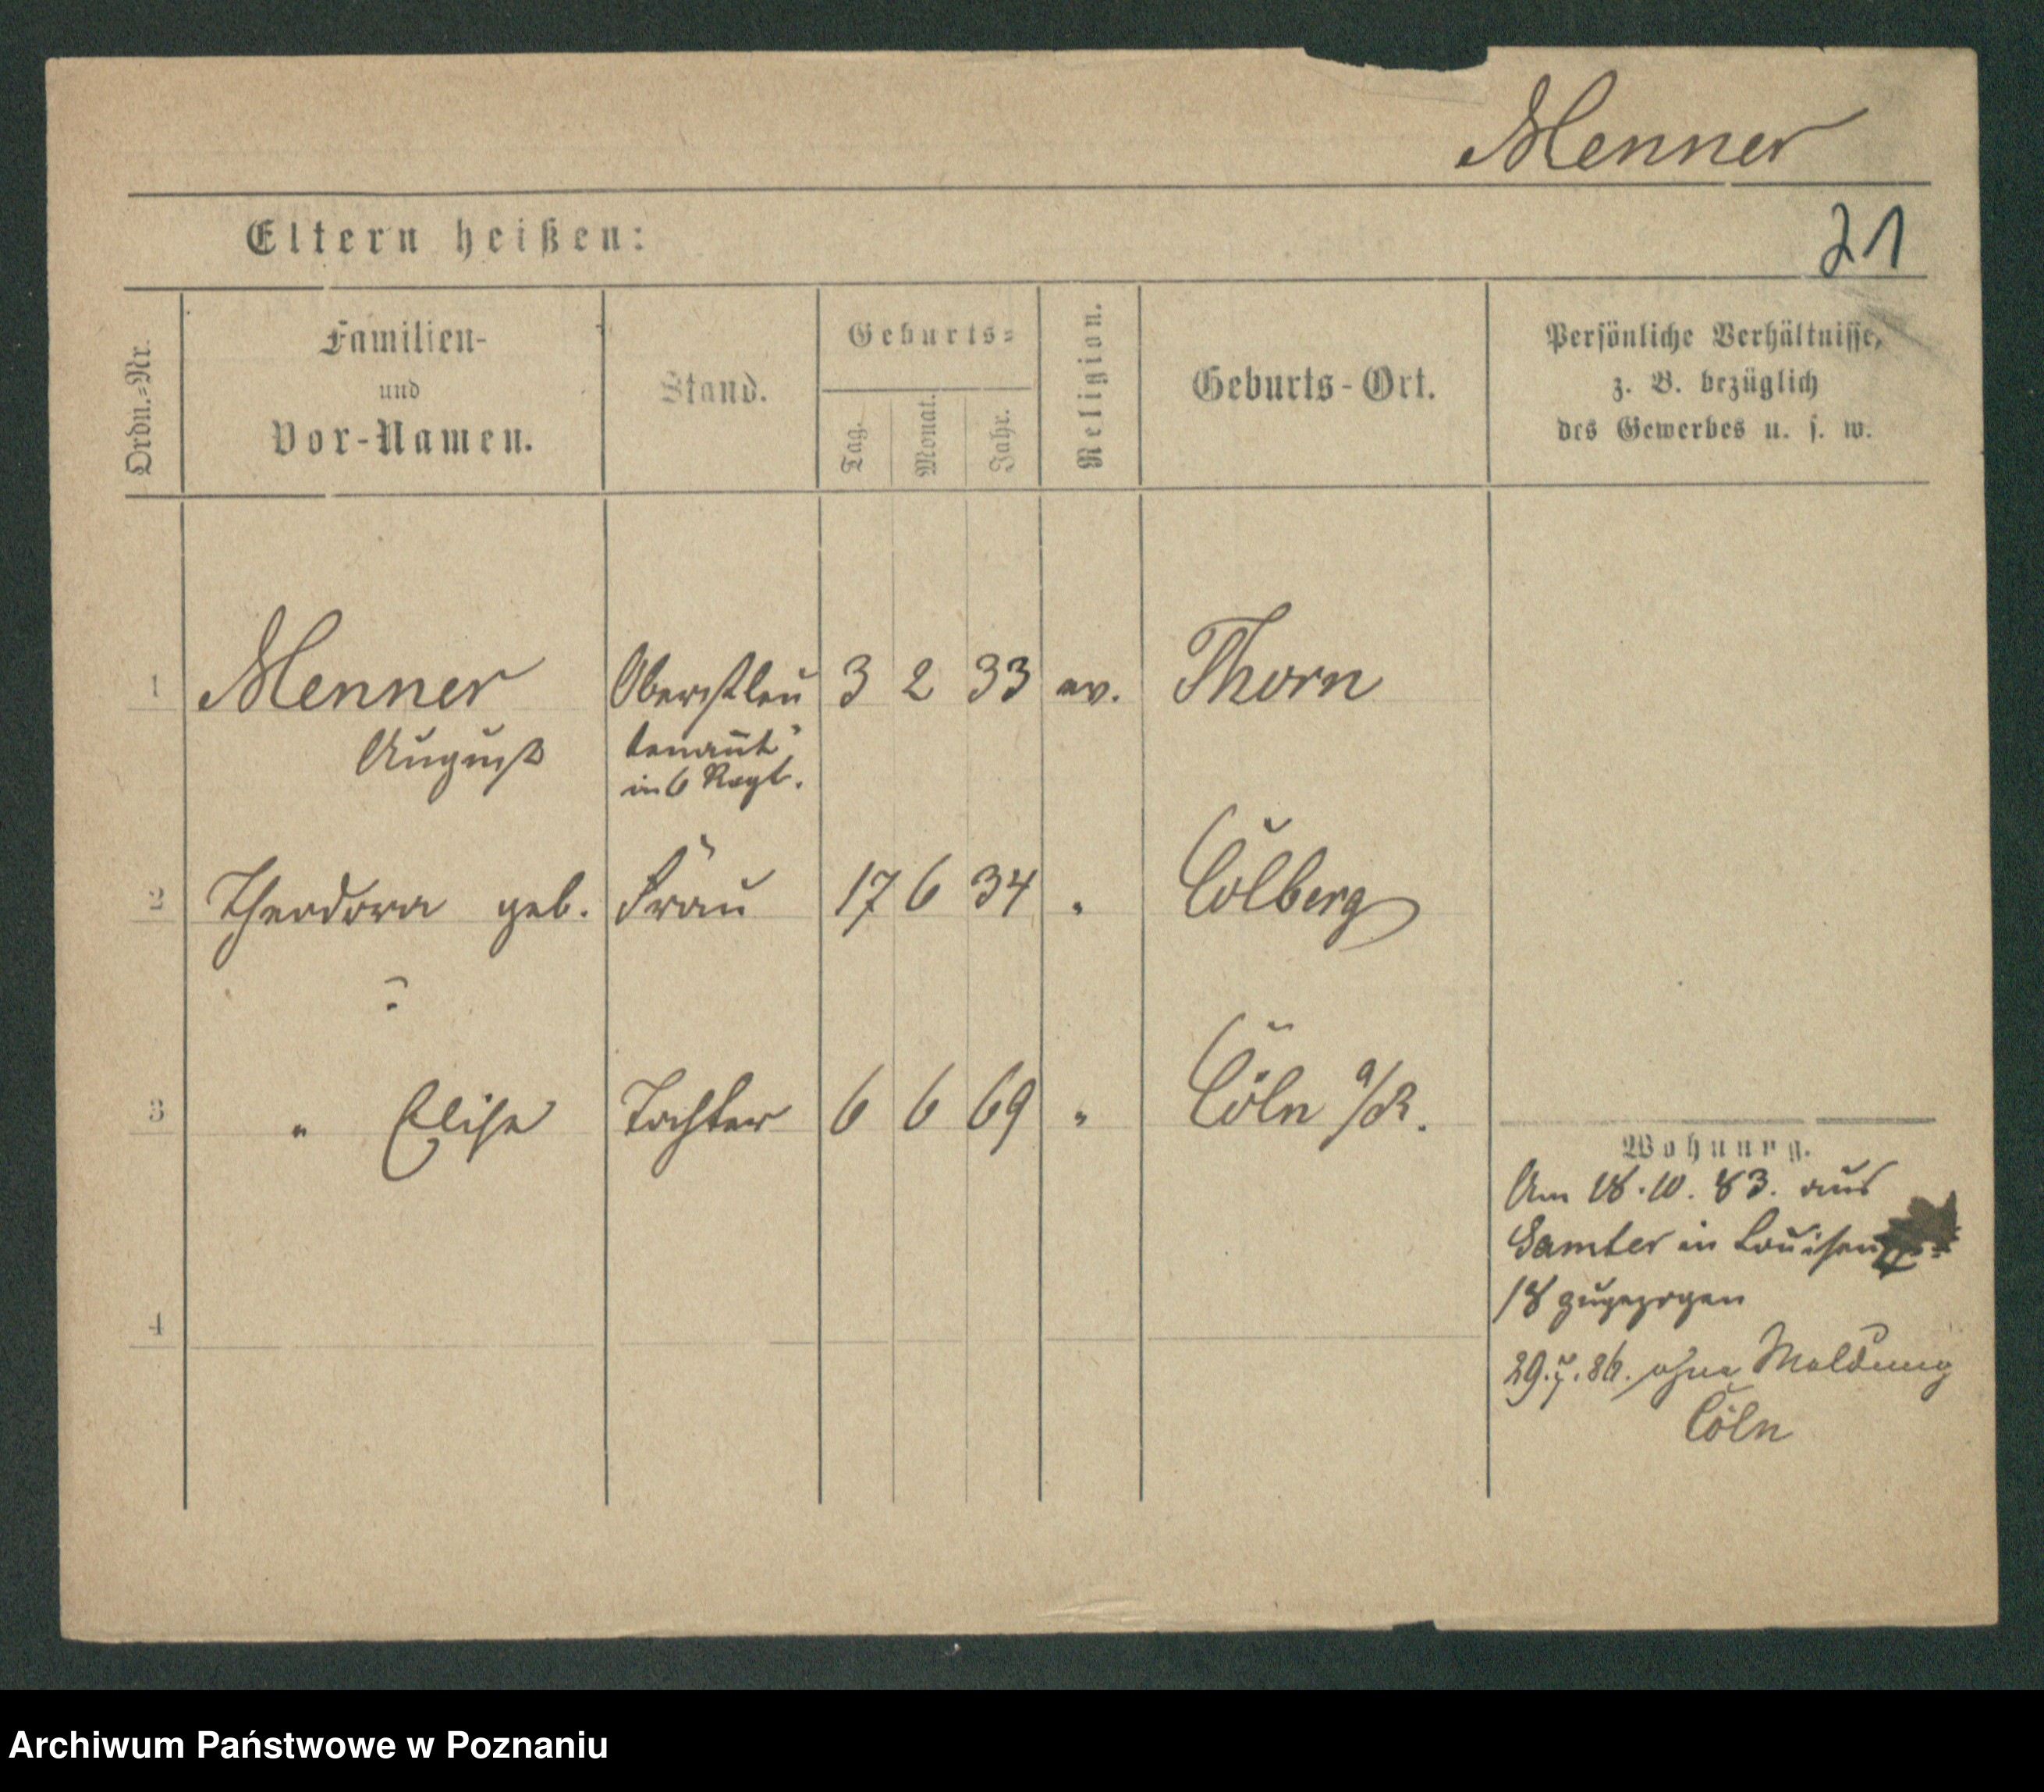 Menner
Eltern heißen:
21
Ordn.-Nr.
Familien-
und
Vor-Namen.
Stand.
Geburts-
Tag.
Monat.
Jahr.
Religion.
Geburts-Ort.
Persönliche Verhältnisse,
z. B. bezüglich
des Gewerbes u. s. w.
1 Menner Oberstleu 3 2 33 ev. Thorn
August tenant
in 6 Regt.
2 Theodora geb. Frau 17 6 34 " Colberg
?
3 " Elise Tochter 6 6 69 " Cöln a/R.
Wohnung.
Am 18.10.83. aus
Samter in Louisen
18 zugezogen
4
29.7.86. ohne Meldung
Cöln
Archiwum Państwowe w Poznaniu